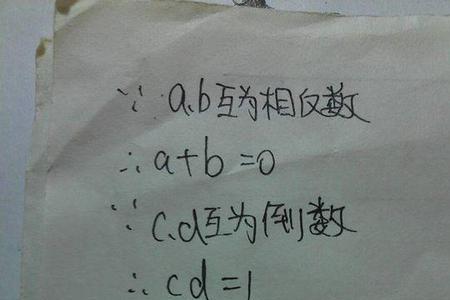 ∵ a、b互为相反数
∴ a+b=0
∵ c、d互为倒数
∴ cd=1